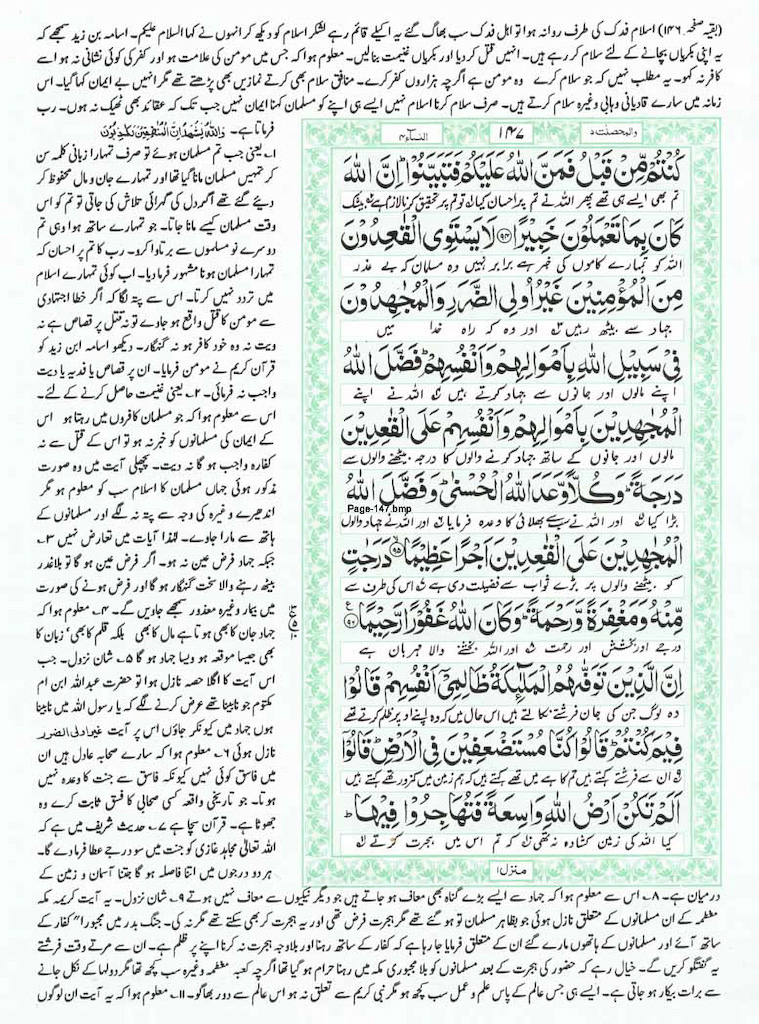 (بقیہ صفحہ ۱۴۶) اسلام فدک کی طرف روانہ ہوا تو اہل فدک سب بھاگ گئے یہ اکیلے قائم رہے لشکر اسلام کو دیکھ کر انہوں نے کہا السلام علیکم۔ اسامہ بن زید سمجھے کہ
یہ اپنی بکریاں بچانے کے لئے سلام کر رہے ہیں۔ انہیں قتل کر دیا اور بکریاں غنیمت بنالیں۔ معلوم ہوا کہ جس میں مومن کی علامت ہو اور کفر کی کوئی نشانی نہ ہو اسے
کافر نہ کہو۔ یہ مطلب نہیں کہ جو سلام کرے وہ مومن ہے اگرچہ ہزاروں کفر کرے۔ منافق سلام بھی کرتے نمازیں بھی پڑھتے تھے مگر انہیں بے ایمان کہا گیا۔ اس
زمانہ میں سارے قادیانی وہابی وغیرہ سلام کرتے ہیں۔ صرف سلام کرنا اسلام نہیں ایسے ہی اپنے کو مسلمان کہنا ایمان نہیں جب تک کہ عقائد بھی ٹھیک نہ ہوں۔ رب
فرماتا ہے۔ وَاللّٰهُ يَشْهَدُ اِنَّ الْمُنٰفِقِيْنَ لَكٰذِبُوْنَ
۱۔ یعنی جب تم مسلمان ہوئے تو صرف تمہارا زبانی کلمہ سن
کر تمہیں مسلمان مانا گیا تھا اور تمہارے جان و مال محفوظ کر
دیئے گئے تھے اگر دل کی گہرائی تلاش کی جاتی تو تم کو اس
وقت مسلمان کیسے مانا جاتا۔ جو تمہارے ساتھ ہوا وہی تم
دوسرے نو مسلموں سے برتاوا کرو۔ رب کا تم پر احسان کہ
تمہارا مسلمان ہونا مشہور فرما دیا۔ اب کوئی تمہارے اسلام
میں تردد نہیں کرتا۔ اس سے پتہ لگا کہ اگر خطا اجتہادی
سے مومن کا قتل واقع ہو جاوے تو نہ قتل پر قصاص ہے نہ
دیت نہ وہ خود کافر ہو نہ گنہگار۔ دیکھو اسامہ ابن زید کو
قرآن کریم نے مومن فرمایا۔ ان پر قصاص یا فدیہ یا دیت
واجب نہ فرمائی۔ ۲۔ یعنی غنیمت حاصل کرنے کے لئے۔
اس سے معلوم ہوا کہ جو مسلمان کافروں میں رہتا ہو اس
کے ایمان کی مسلمانوں کو خبر نہ ہو تو اس کے قتل سے نہ
کفارہ واجب ہو گا نہ دیت۔ پچھلی آیت میں وہ صورت
مذکور ہوئی جہاں مسلمان کا اسلام سب کو معلوم ہو مگر
اندھیرے وغیرہ کی وجہ سے پتہ نہ لگے اور مسلمانوں کے
ہاتھ سے مارا جاوے۔ لہٰذا آیات میں تعارض نہیں ۳۔
جبکہ جہاد فرض عین نہ ہو۔ اگر فرض عین ہو گا تو بلاعذر
بیٹھ رہنے والا سخت گنہگار ہو گا اور فرض ہونے کی صورت
میں بیمار وغیرہ معذور سمجھے جاویں گے۔ ۴۔ معلوم ہوا کہ
جہاد جان کا بھی ہوتا ہے مال کا بھی بلکہ قلم کا بھی' زبان کا
بھی جیسا موقعہ ہو ویسا جہاد ہو گا ۵۔ شان نزول۔ جب
اس آیت کا اگلا حصہ نازل ہوا تو حضرت عبداللہ ابن ام
مکتوم جو نابینا تھے عرض کرنے لگے کہ یا رسول اللہ میں نابینا
ہوں جہاد میں کیونکر جاؤں اس پر آیت غیراولی الضرر
نازل ہوئی ۶۔ معلوم ہوا کہ سارے صحابہ عادل ہیں ان
میں فاسق کوئی نہیں کیونکہ فاسق سے جنت کا وعدہ نہیں
ہوتا۔ جو تاریخی واقعہ کسی صحابی کا فسق ثابت کرے وہ
جھوٹا ہے۔ قرآن سچا ہے ۷۔ حدیث شریف میں ہے کہ
اللہ تعالٰی مجاہد غازی کو جنت میں سو درجے عطا فرمادے گا۔
ہر دو درجوں میں اتنا فاصلہ ہو گا جتنا آسمان و زمین کے
والمحصنت ۵
۱۴۷
النسآء ۴
كُنْتُمْ مِّنْ قَبْلُ فَمَنَّ اللّٰهُ عَلَيْكُمْ فَتَبَيَّنُوْا ؕ اِنَّ اللّٰهَ
تم بھی ایسے ہی تھے پھر اللہ نے تم پر احسان کیا تو تم پر تحقیق کرنا لازم ہے بیشک
كَانَ بِمَا تَعْمَلُوْنَ خَبِيْرًا ﴿۹۴﴾ لَا يَسْتَوِى الْقٰعِدُوْنَ
اللہ کو تمہارے کاموں کی خبر ہے برابر نہیں وہ مسلمان کہ بے عذر
مِنَ الْمُؤْمِنِيْنَ غَيْرُ اُولِى الضَّرَرِ وَالْمُجٰهِدُوْنَ
جہاد سے بیٹھ رہیں اور وہ کہ راہ خدا میں
فِىْ سَبِيْلِ اللّٰهِ بِاَمْوَالِهِمْ وَاَنْفُسِهِمْ ؕ فَضَّلَ اللّٰهُ
اپنے مالوں اور جانوں سے جہاد کرتے ہیں اللہ نے اپنے
الْمُجٰهِدِيْنَ بِاَمْوَالِهِمْ وَاَنْفُسِهِمْ عَلَى الْقٰعِدِيْنَ
مالوں اور جانوں کے ساتھ جہاد کرنے والوں کا درجہ بیٹھنے والوں سے
دَرَجَةً ؕ وَكُلًّا وَّعَدَ اللّٰهُ الْحُسْنٰى ؕ وَفَضَّلَ اللّٰهُ
Page-147.bmp
بڑا کیا اور اللہ نے سب سے بھلائی کا وعدہ فرمایا اور اللہ نے جہاد والوں
الْمُجٰهِدِيْنَ عَلَى الْقٰعِدِيْنَ اَجْرًا عَظِيْمًا ﴿۹۵﴾ دَرَجٰتٍ
کو بیٹھنے والوں پر بڑے ثواب سے فضیلت دی ہے اس کی طرف سے
مِّنْهُ وَمَغْفِرَةً وَّرَحْمَةً ؕ وَكَانَ اللّٰهُ غَفُوْرًا رَّحِيْمًا ﴿۹۶﴾
درجے اور بخشش اور رحمت اور اللہ بخشنے والا مہربان ہے
اِنَّ الَّذِيْنَ تَوَفّٰهُمُ الْمَلٰٓئِكَةُ ظَالِمِىْۤ اَنْفُسِهِمْ قَالُوْا
وہ لوگ جن کی جان فرشتے نکالتے ہیں اس حال میں کہ وہ اپنے اوپر ظلم کرتے تھے
فِيْمَ كُنْتُمْ ؕ قَالُوْا كُنَّا مُسْتَضْعَفِيْنَ فِى الْاَرْضِ ؕ قَالُوْۤا
ان سے فرشتے کہتے ہیں تم کاہے میں تھے کہتے ہیں کہ ہم زمین میں کمزور تھے کہتے ہیں
اَلَمْ تَكُنْ اَرْضُ اللّٰهِ وَاسِعَةً فَتُهَاجِرُوْا فِيْهَا ؕ
کیا اللہ کی زمین کشادہ نہ تھی کہ تم اس میں ہجرت کرتے
منزل ۱
درمیان ہے۔ ۸۔ اس سے معلوم ہوا کہ جہاد سے ایسے بڑے گناہ بھی معاف ہو جاتے ہیں جو دیگر نیکیوں سے معاف نہیں ہوتے ۹۔ شان نزول۔ یہ آیت کریمہ مکہ
معظمہ کے ان مسلمانوں کے متعلق نازل ہوئی جو بظاہر مسلمان تو ہو گئے تھے مگر ہجرت فرض تھی اور یہ ہجرت کر بھی سکتے تھے مگر نہ کی۔ جنگ بدر میں مجبورا" کفار کے
ساتھ آئے اور مسلمانوں کے ہاتھوں مارے گئے ان کے متعلق فرمایا جا رہا ہے کہ کفار کے ساتھ رہنا اور بلاوجہ ہجرت نہ کرنا اپنے پر ظلم ہے۔ ان سے مرتے وقت فرشتے
یہ گفتگو کریں گے۔ خیال رہے کہ حضور کی ہجرت کے بعد مسلمانوں کو بلا مجبوری مکہ میں رہنا حرام ہو گیا تھا اگرچہ کعبہ معظمہ وغیرہ سب کچھ تھا مگر دولہا کے نکل جانے
سے برات بیکار ہو جاتی ہے۔ ایسے ہی جس عالم کے پاس علم و عمل سب کچھ ہو مگر نبی کریم سے تعلق نہ ہو اس عالم سے دور بھاگو۔ ۱۱۔ معلوم ہوا کہ یہ آیت ان لوگوں